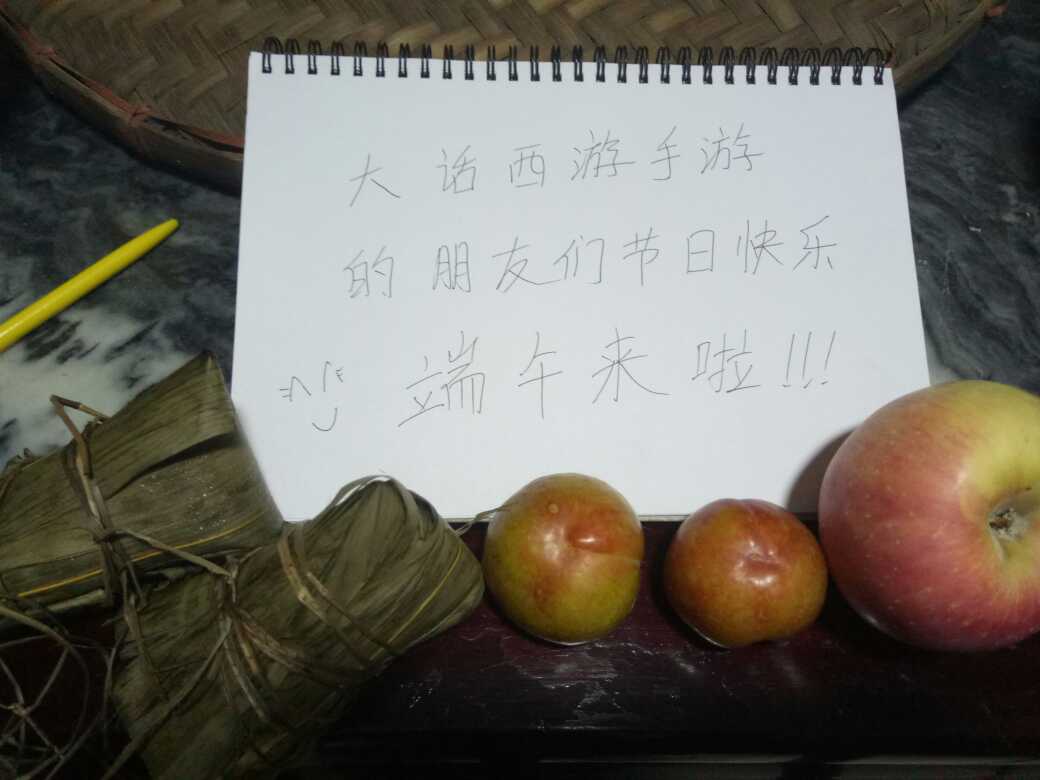 大话西游手游
的朋友们节日快乐
端午来啦!!!